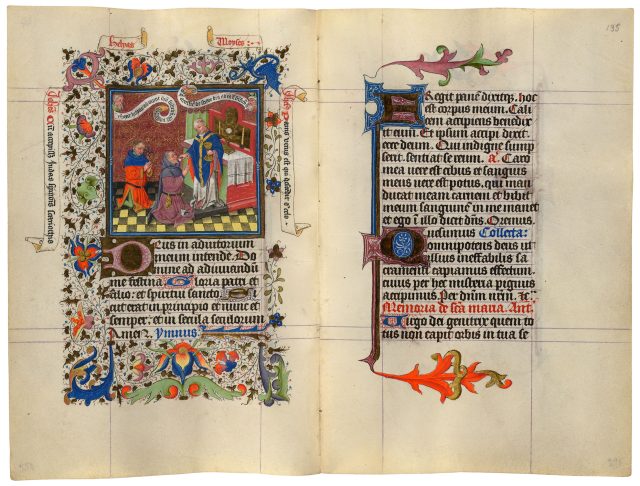 Helyas
Moyses
Deus in adiutorium
meum intende. Do
mine ad adiuuandū
me festina. Gloria patri et
filio: et spiritui sancto
cut erat in principio et nunc et
semper. et in secula seculorum
Amen. ymnus
195
Fregit panē dixitq̄. hoc
est corpus meum. Cali
cem accipiens benedix
it eum. Et ipsum accipi dixit
uere deum. Qui indigne sump
serit. sentiat se reum. a. Caro
mea uere est cibus et sanguis
meus uere est potus. qui man
ducat meam carnem et bibit
meum sanguinē in me manet
et ego ī illo dicit dn̄s. Oremus.
quesumus Collecta:
Omnipotens deus ut
illius ineffabilis sa
cramenti capiamus effectum.
cuius per hec misteria pignus
accepimus. Per dn̄m nr̄m. ⁊c.
Memoria de sc̄a maria. Ant.
Uirgo dei genitrix quem to
tus non capit orbis in tua se